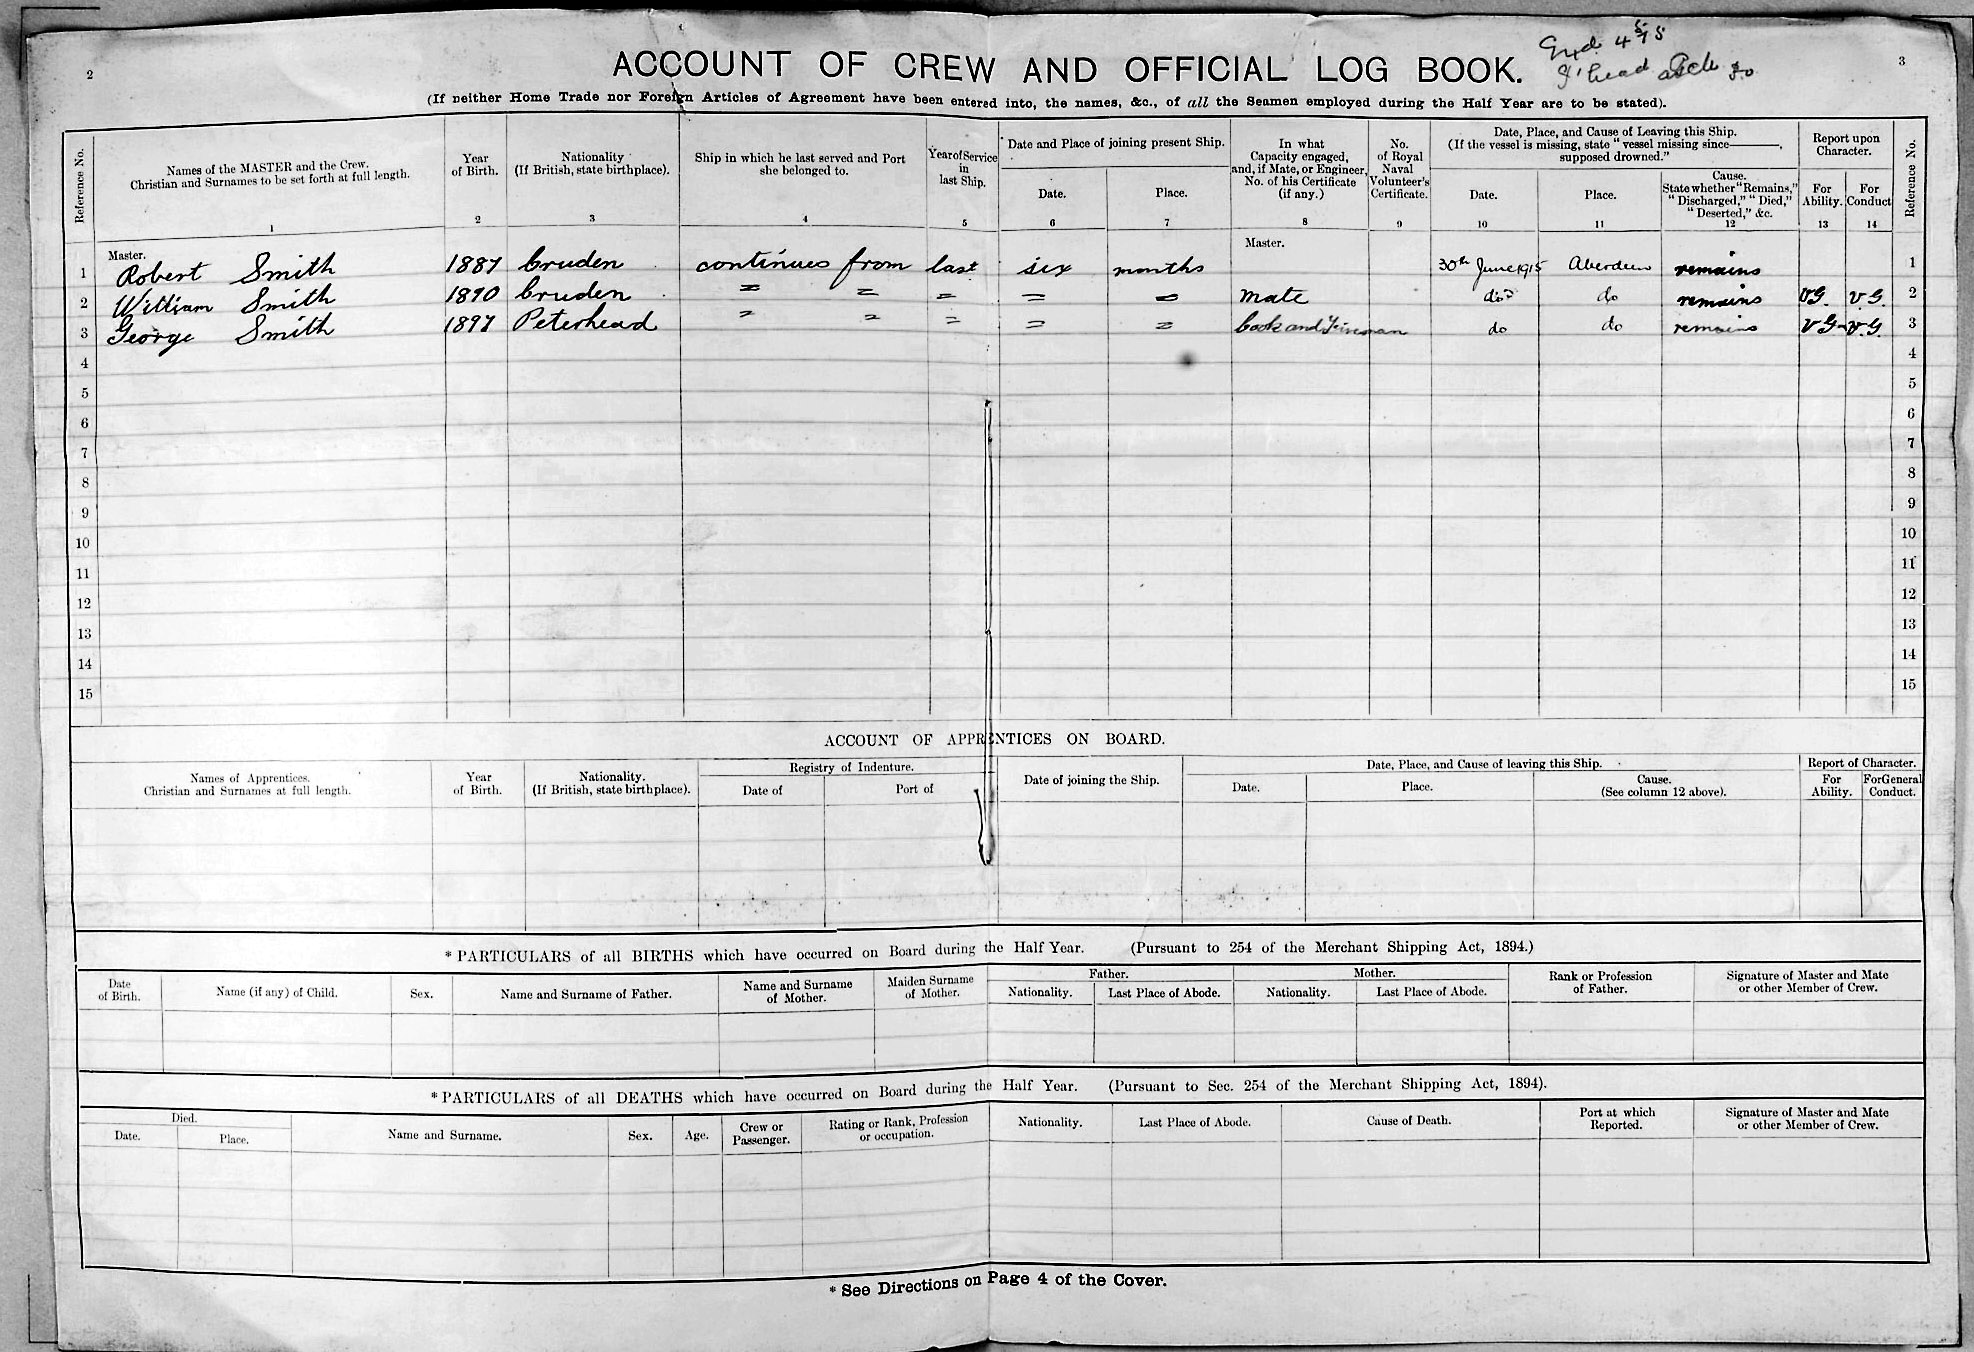 2
ACCOUNT OF CREW AND OFFICIAL LOG BOOK.
3
(If neither Home Trade nor Foreign Articles of Agreement have been entered into, the names, &c., of all the Seamen employed during the Half Year are to be stated).
Reference No.
Names of the MASTER and the Crew.
Christian and Surnames to be set forth at full length.
1
Year
of Birth.
2
Nationality
(If British, state birthplace).
3
Ship in which he last served and Port
she belonged to.
4
Year of Service
in
last Ship.
5
Date and Place of joining present Ship.
Date.
6
Place.
7
In what
Capacity engaged,
and, if Mate, or Engineer,
No. of his Certificate
(if any.)
8
No.
of Royal
Naval
Volunteer's
Certificate.
9
Date, Place, and Cause of Leaving this Ship.
(If the vessel is missing, state "vessel missing since———,
supposed drowned."
Date.
10
Place.
11
Cause.
State whether "Remains,"
"Discharged," "Died,"
"Deserted," &c.
12
Report upon
Character.
For
Ability.
13
For
Conduct
14
Reference No.
Master.
Master.
1 Robert Smith 1887 Cruden continues from last six months 30th June 1915 Aberdeen remains 1
2 William Smith 1890 Cruden = = = = = mate do do remains VG. V.G. 2
3 George Smith 1897 Peterhead = = = = = Cook and Fireman do do remains VG V.G. 3
4 4
5 5
6 6
7 7
8 8
9 9
10 10
11 11
12 12
13 13
14 14
15 15
ACCOUNT OF APPRENTICES ON BOARD.
Names of Apprentices.
Christian and Surnames at full length.
Year
of Birth.
Nationality.
(If British, state birthplace).
Registry of Indenture.
Date of
Port of
Date of joining the Ship.
Date, Place, and Cause of leaving this Ship.
Date.
Place.
Cause.
(See column 12 above).
Report of Character.
For
Ability.
For General
Conduct.
*PARTICULARS of all BIRTHS which have occurred on Board during the Half Year. (Pursuant to 254 of the Merchant Shipping Act, 1894.)
Date
of Birth.
Name (if any) of Child.
Sex.
Name and Surname of Father.
Name and Surname
of Mother.
Maiden Surname
of Mother.
Father.
Nationality.
Last Place of Abode.
Mother.
Nationality.
Last Place of Abode.
Rank or Profession
of Father.
Signature of Master and Mate
or other Member of Crew.
*PARTICULARS of all DEATHS which have occurred on Board during the Half Year. (Pursuant to Sec. 254 of the Merchant Shipping Act, 1894).
Died.
Date.
Place.
Name and Surname.
Sex.
Age.
Crew or
Passenger.
Rating or Rank, Profession
or occupation.
Nationality.
Last Place of Abode.
Cause of Death.
Port at which
Reported.
Signature of Master and Mate
or other Member of Crew.
* See Directions on Page 4 of the Cover.